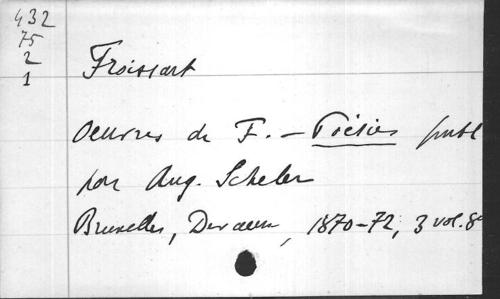 432
75
2
1
Froissart
Oeuvres de F. — Poésies publ
par Aug. Scheler
Bruxelles, Devaux, 1870-72, 3 vol. 8°